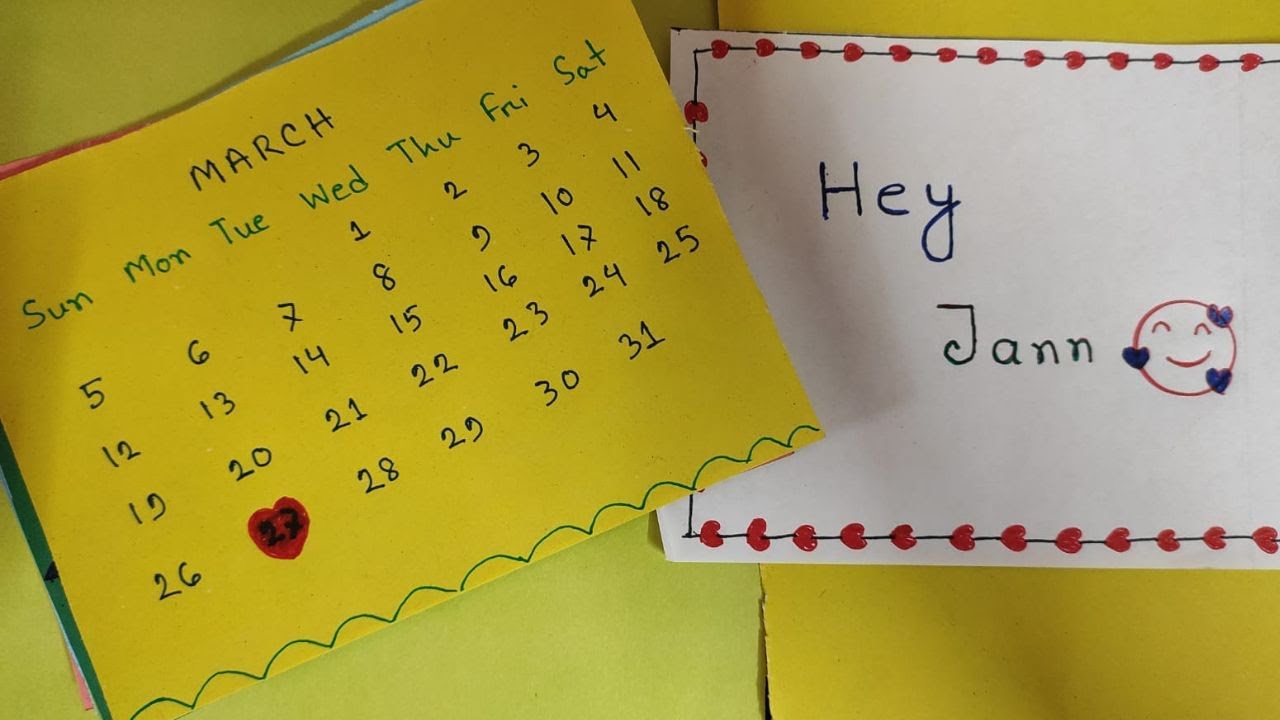 MARCH
Sun Mon Tue Wed Thu Fri Sat
1 2 3 4
5 6 7 8 9 10 11
12 13 14 15 16 17 18
19 20 21 22 23 24 25
26 27 28 29 30 31
Hey
Jann